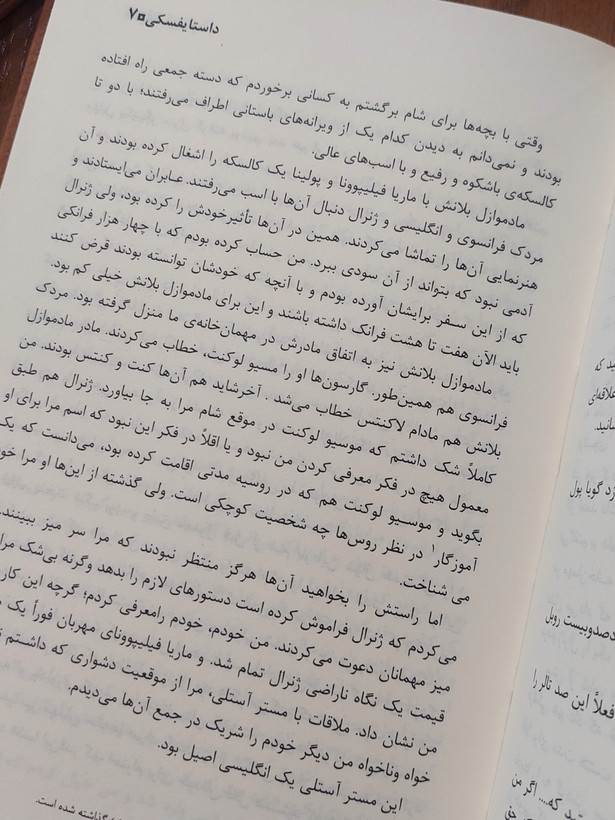 داستایفسکی ۷۰
وقتی با بچه‌ها برای شام برگشتم به کسانی برخوردم که دسته جمعی راه افتاده
بودند و نمی‌دانم به دیدن کدام یک از ویرانه‌های باستانی اطراف می‌رفتند؛ با دو تا
کالسکه‌ی باشکوه و رفیع و با اسب‌های عالی.
مادموازل بلانش با ماریا فیلیپوونا و پولینا یک کالسکه را اشغال کرده بودند و آن
مردک فرانسوی و انگلیسی و ژنرال دنبال آن‌ها با اسب می‌رفتند. عابران می‌ایستادند و
هنرنمایی آن‌ها را تماشا می‌کردند. همین در آن‌ها تأثیرخودش را کرده بود، ولی ژنرال
آدمی نبود که بتواند از آن سودی ببرد. من حساب کرده بودم که با چهار هزار فرانکی
که از این سفر برایشان آورده بودم و با آنچه که خودشان توانسته بودند قرض کنند
باید الآن هفت تا هشت فرانک داشته باشند و این برای مادموازل بلانش خیلی کم بود.
مادموازل بلانش نیز به اتفاق مادرش در مهمان‌خانه‌ی ما منزل گرفته بود. مردک
فرانسوی هم همین‌طور. گارسون‌ها او را مسیو لوکنت، خطاب می‌کردند. مادر مادموازل
بلانش هم مادام لاکنتس خطاب می‌شد. آخرشاید هم آن‌ها کنت و کنتس بودند. من
کاملاً شک داشتم که موسیو لوکنت در موقع شام مرا به جا بیاورد. ژنرال هم طبق
معمول هیچ در فکر معرفی کردن من نبود و یا اقلاً در فکر این نبود که اسم مرا برای او
بگوید و موسیو لوکنت هم که در روسیه مدتی اقامت کرده بود، می‌دانست که یک
آموزگار۱ در نظر روس‌ها چه شخصیت کوچکی است. ولی گذشته از این‌ها او مرا
می شناخت.
اما راستش را بخواهید آن‌ها هرگز منتظر نبودند که مرا سر میز ببینند.
می‌کردم که ژنرال فراموش کرده است دستورهای لازم را بدهد وگرنه بی‌شک مرا
میز مهمانان دعوت می‌کردند. من خودم، خودم رامعرفی کردم؛ گرچه این کار
قیمت یک نگاه ناراضی ژنرال تمام شد. و ماریا فیلیپوونای مهربان فوراً یک
من نشان داد. ملاقات با مستر آستلی، مرا از موقعیت دشواری که داشتم
خواه وناخواه من دیگر خودم را شریک در جمع آن‌ها می‌دیدم.
این مستر آستلی یک انگلیسی اصیل بود.
گذاشته شده است.
که
علاقه‌ای
گویا پول
روبل
فعلاً این صد تالر را
که.... اگر من